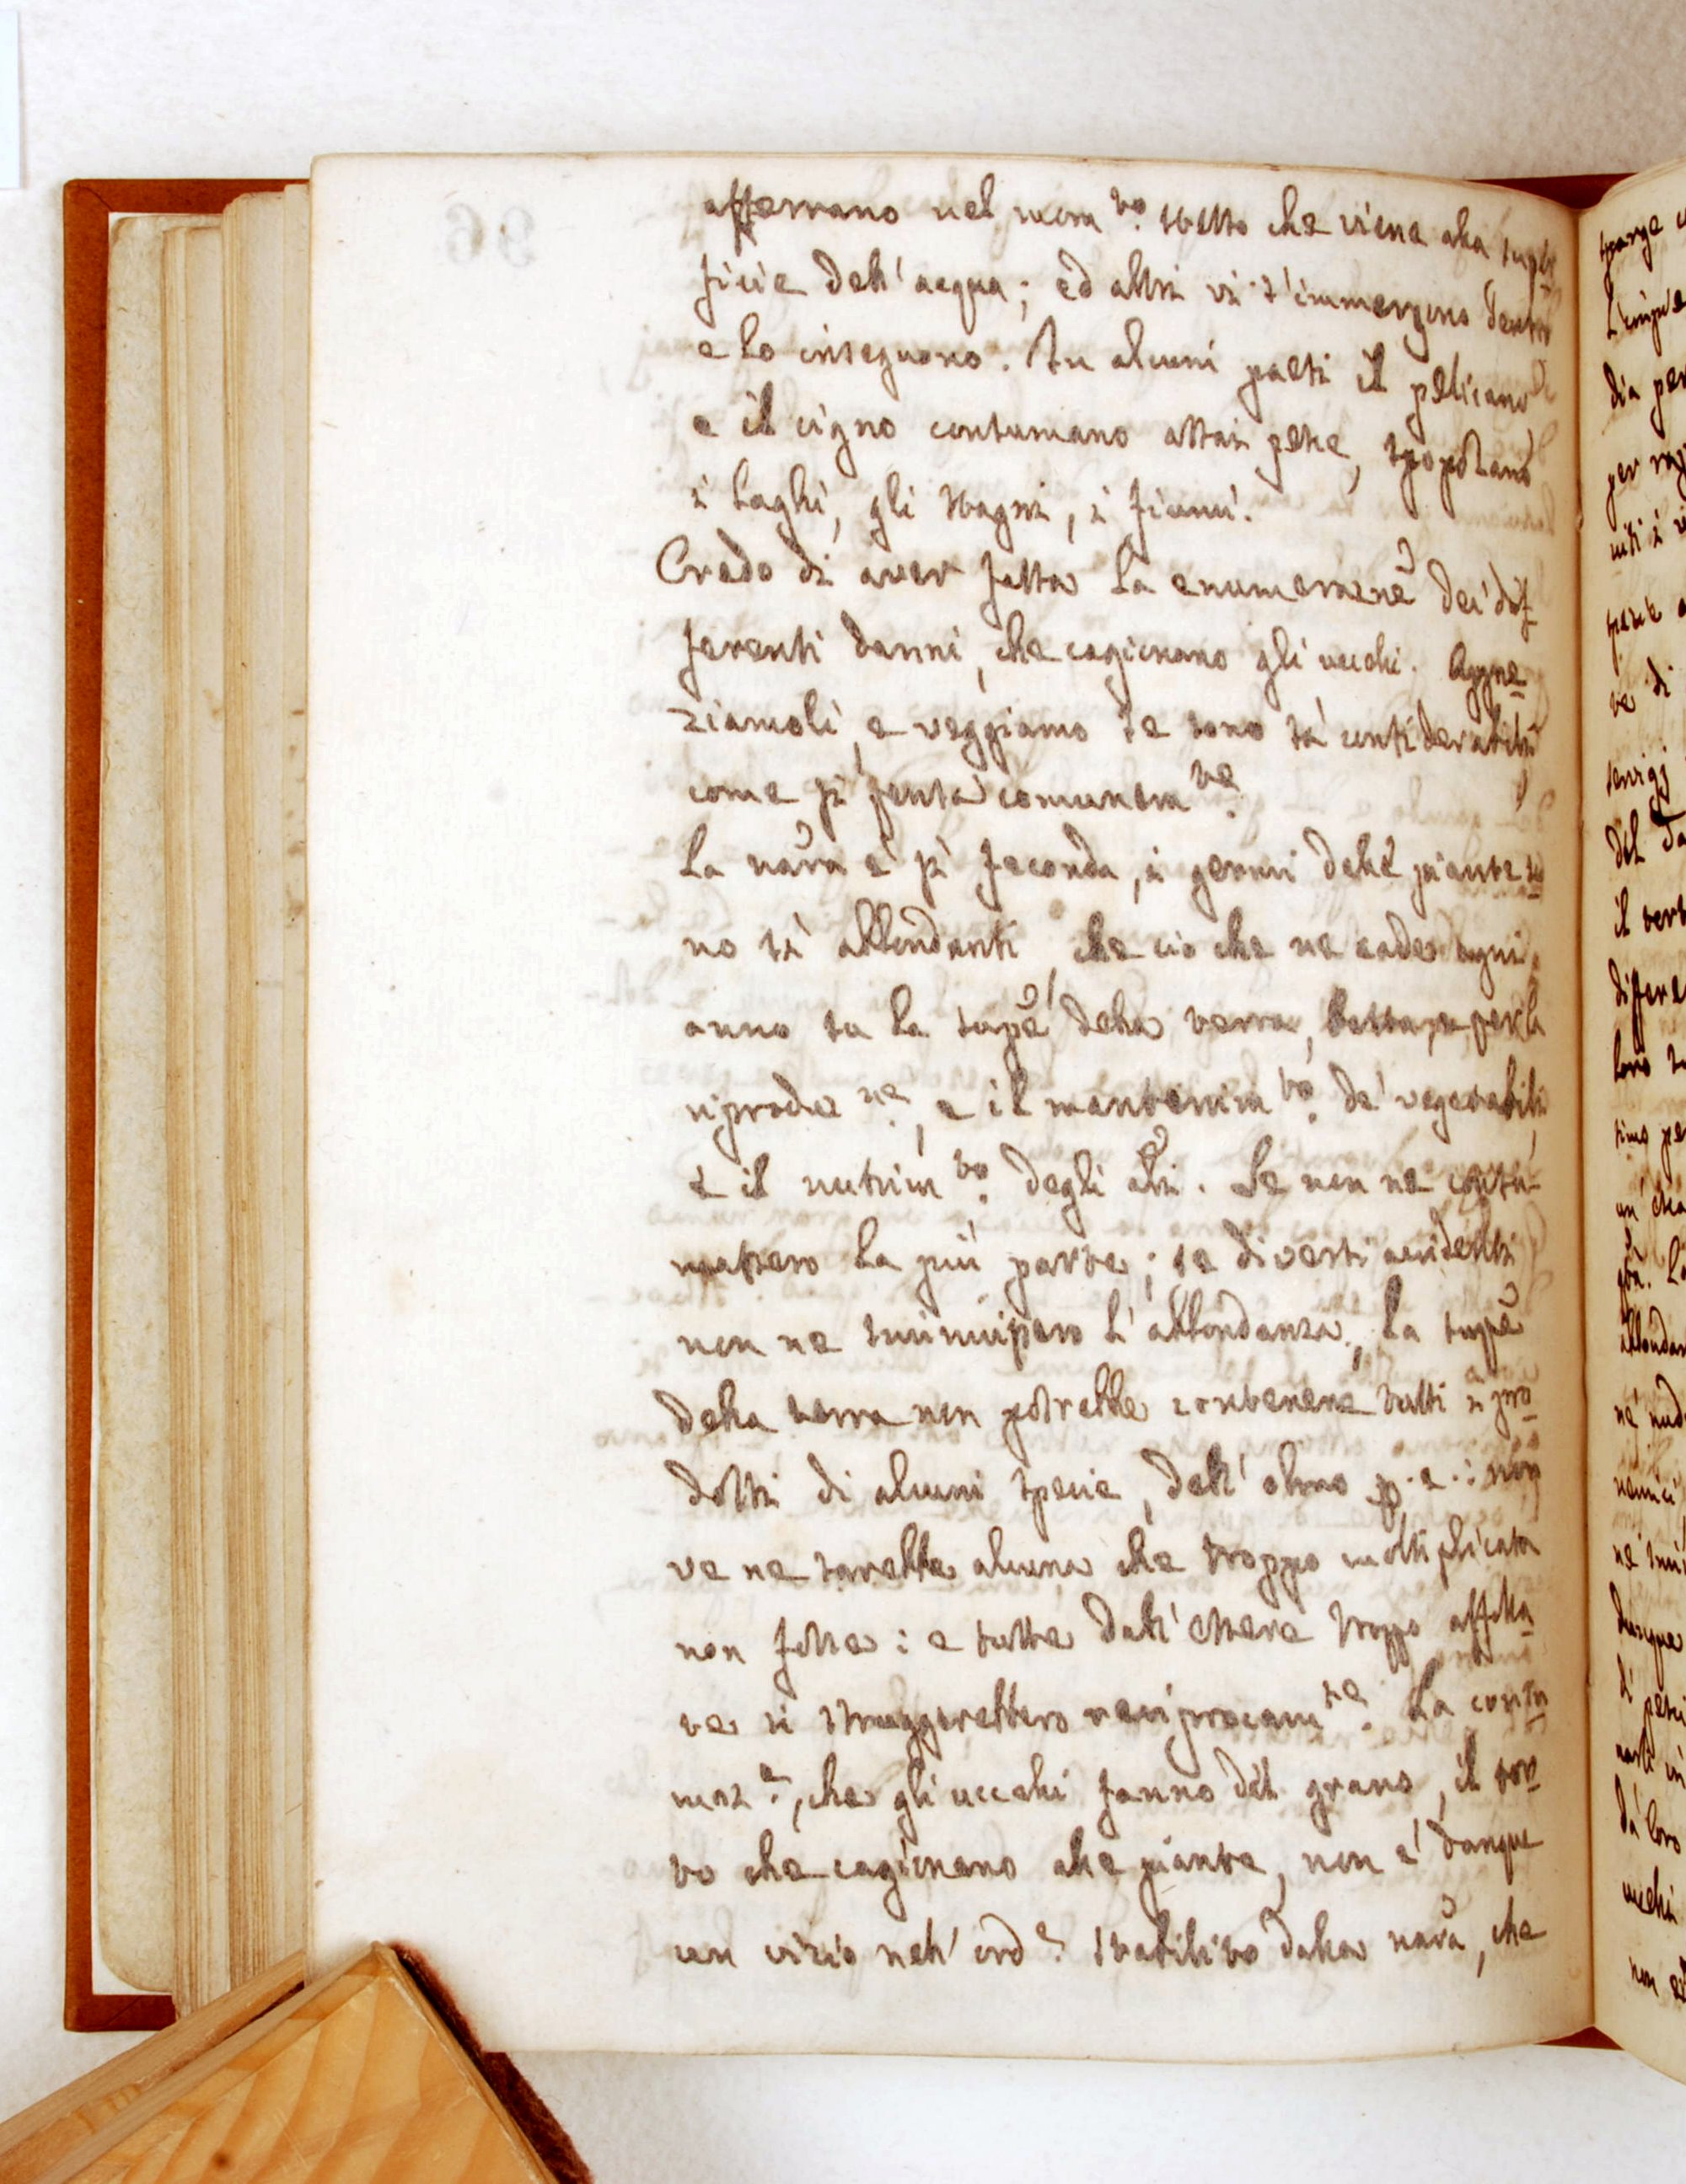 afferrano nel mom.to stesso che viene alla super
ficie dell'acqua; ed altri vi s'immergono dentro
e lo inseguono. In alcuni paesi il pelicano
e il cigno consumano assai pesce, spopolano
i laghi, gli stagni, i fiumi.
Credo di aver fatta la enumerazne dei dif
ferenti danni, che cagionano gli uccelli. Appre
ziamoli, e veggiamo se sono sì considerabili,
come si pensa comunem.te
La natra è sì feconda, i germi delle piante so
no sì abbondanti che ciò che ne cade ogni
anno su la supe della terra, basta per la
riproduz.ne, e il mantenim.to de' vegetabili
e il nutrim.to degli alri. Se non ne consu
massero la più parte; se diversi accidenti
non ne sminuissero l'abbondanza, la supe
della terra non potrebbe contenere tutti i pro
dotti di alcuni specie, dell'olmo p. e.: non
ve ne sarebbe alcuna che troppo moltiplicata
non fosse: e tutte dall'essere troppo affolla
te si struggerebbero reciprocam.te La consu
maz.e, che gli uccelli fanno del grano, il tor
to che cagionano alle piante, non è danque
un vizio nell'ord.e stabilito dalla natra, che
96